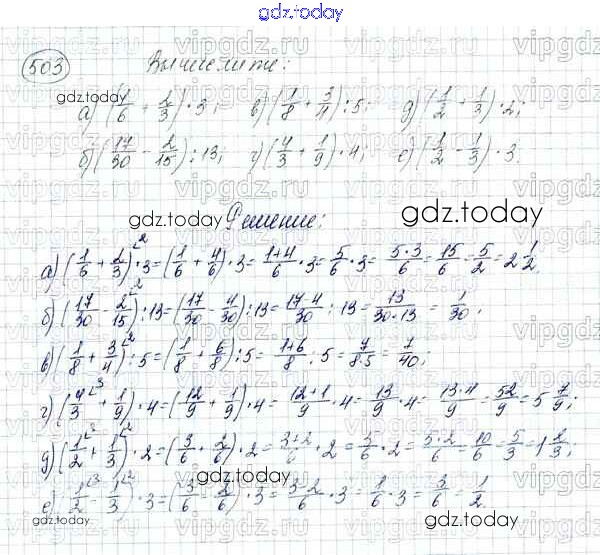 gdz.today
503 Вычислите:
а) (1/6 + 2/3) · 3; в) (1/8 + 3/4) : 5; д) (1/2 + 1/3) · 2;
б) (17/30 - 2/15) : 13; г) (4/3 + 1/9) · 4; е) (1/2 - 1/3) · 3.
gdz.today
Решение:
gdz.today
gdz.today
а) (1/6 + 2/3) · 3 = (1/6 + 4/6) · 3 = 1+4/6 · 3 = 5/6 · 3 = 5·3/6 = 15/6 = 5/2 = 2 1/2.
б) (17/30 - 2/15) : 13 = (17/30 - 4/30) : 13 = 17-4/30 : 13 = 13/30·13 = 1/30;
в) (1/8 + 3/4) : 5 = (1/8 + 6/8) : 5 = 1+6/8 : 5 = 7/8·5 = 7/40;
г) (4/3 + 1/9) · 4 = (12/9 + 1/9) · 4 = 12+1/9 · 4 = 13/9 · 4 = 13·4/9 = 52/9 = 5 7/9;
д) (1/2 + 1/3) · 2 = (3/6 + 2/6) · 2 = 3+2/6 · 2 = 5/6 · 2 = 5·2/6 = 10/6 = 5/3 = 1 2/3;
gdz.today
е) (1/2 - 1/3) · 3 = (3/6 - 2/6) · 3 = 3-2/6 · 3 = 1/6 · 3 = 3/6 = 1/2.
gdz.today
gdz.today
vipgdz.ru